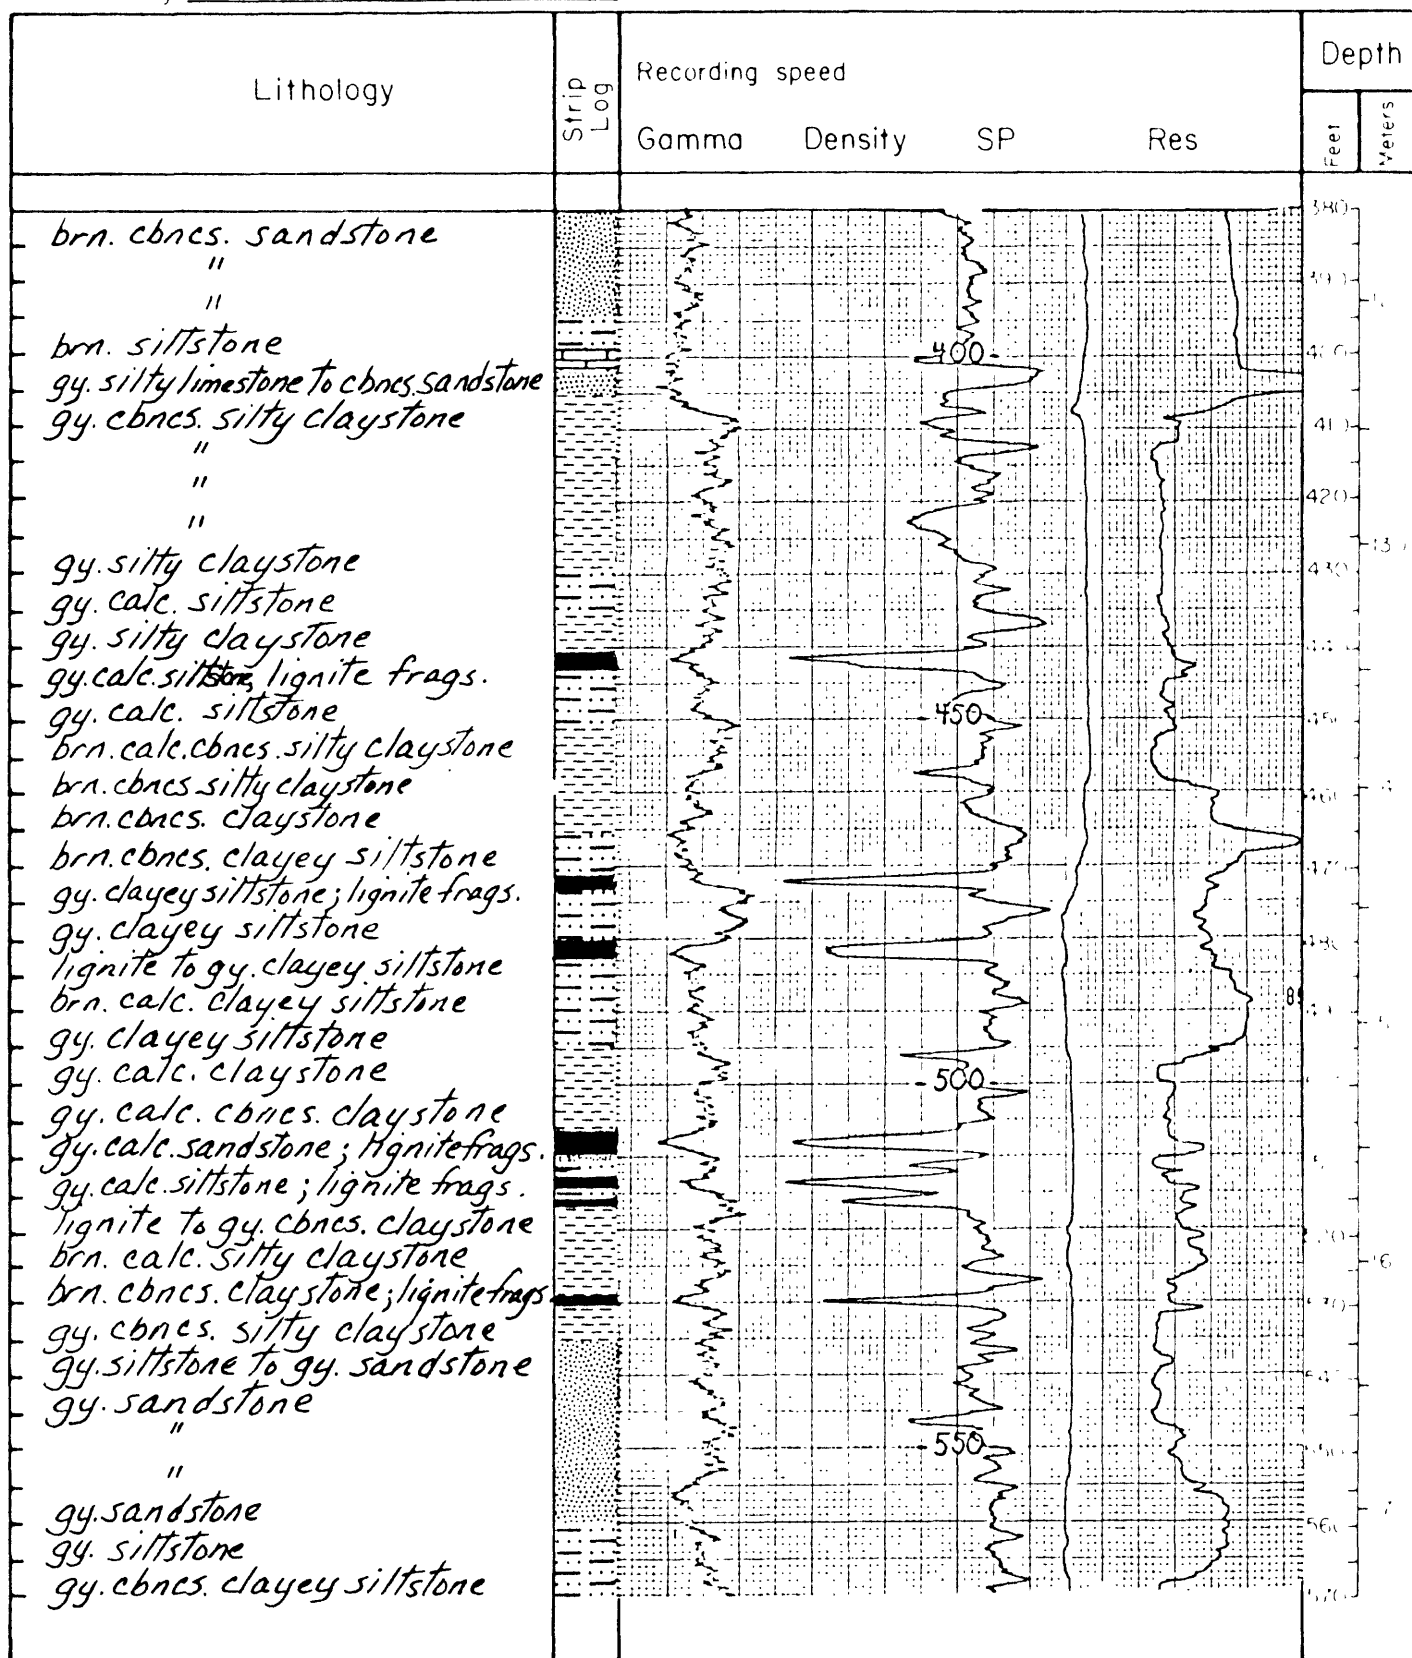 Lithology
Strip Log
Recording speed
Gamma Density SP Res
Depth
Feet
Meters
brn. cbncs. sandstone
"
"
brn. siltstone
gy. silty limestone to cbncs. sandstone
gy. cbncs. silty claystone
"
"
"
gy. silty claystone
gy. calc. siltstone
gy. silty claystone
gy. calc. siltstone, lignite frags.
gy. calc. siltstone
brn. calc. cbncs. silty claystone
brn. cbncs silty claystone
brn. cbncs. claystone
brn. cbncs. clayey siltstone
gy. clayey siltstone; lignite frags.
gy. clayey siltstone
lignite to gy. clayey siltstone
brn. calc. clayey siltstone
gy. clayey siltstone
gy. calc. claystone
gy. calc. cbncs. claystone
gy. calc. sandstone; lignite frags.
gy. calc. siltstone; lignite frags.
lignite to gy. cbncs. claystone
brn. calc. silty claystone
brn. cbncs. claystone; lignite frags.
gy. cbncs. silty claystone
gy. siltstone to gy. sandstone
gy. sandstone
"
"
gy. sandstone
gy. siltstone
gy. cbncs. clayey siltstone
-400-
-450-
-500-
-550-
380
390
400
410
420
430